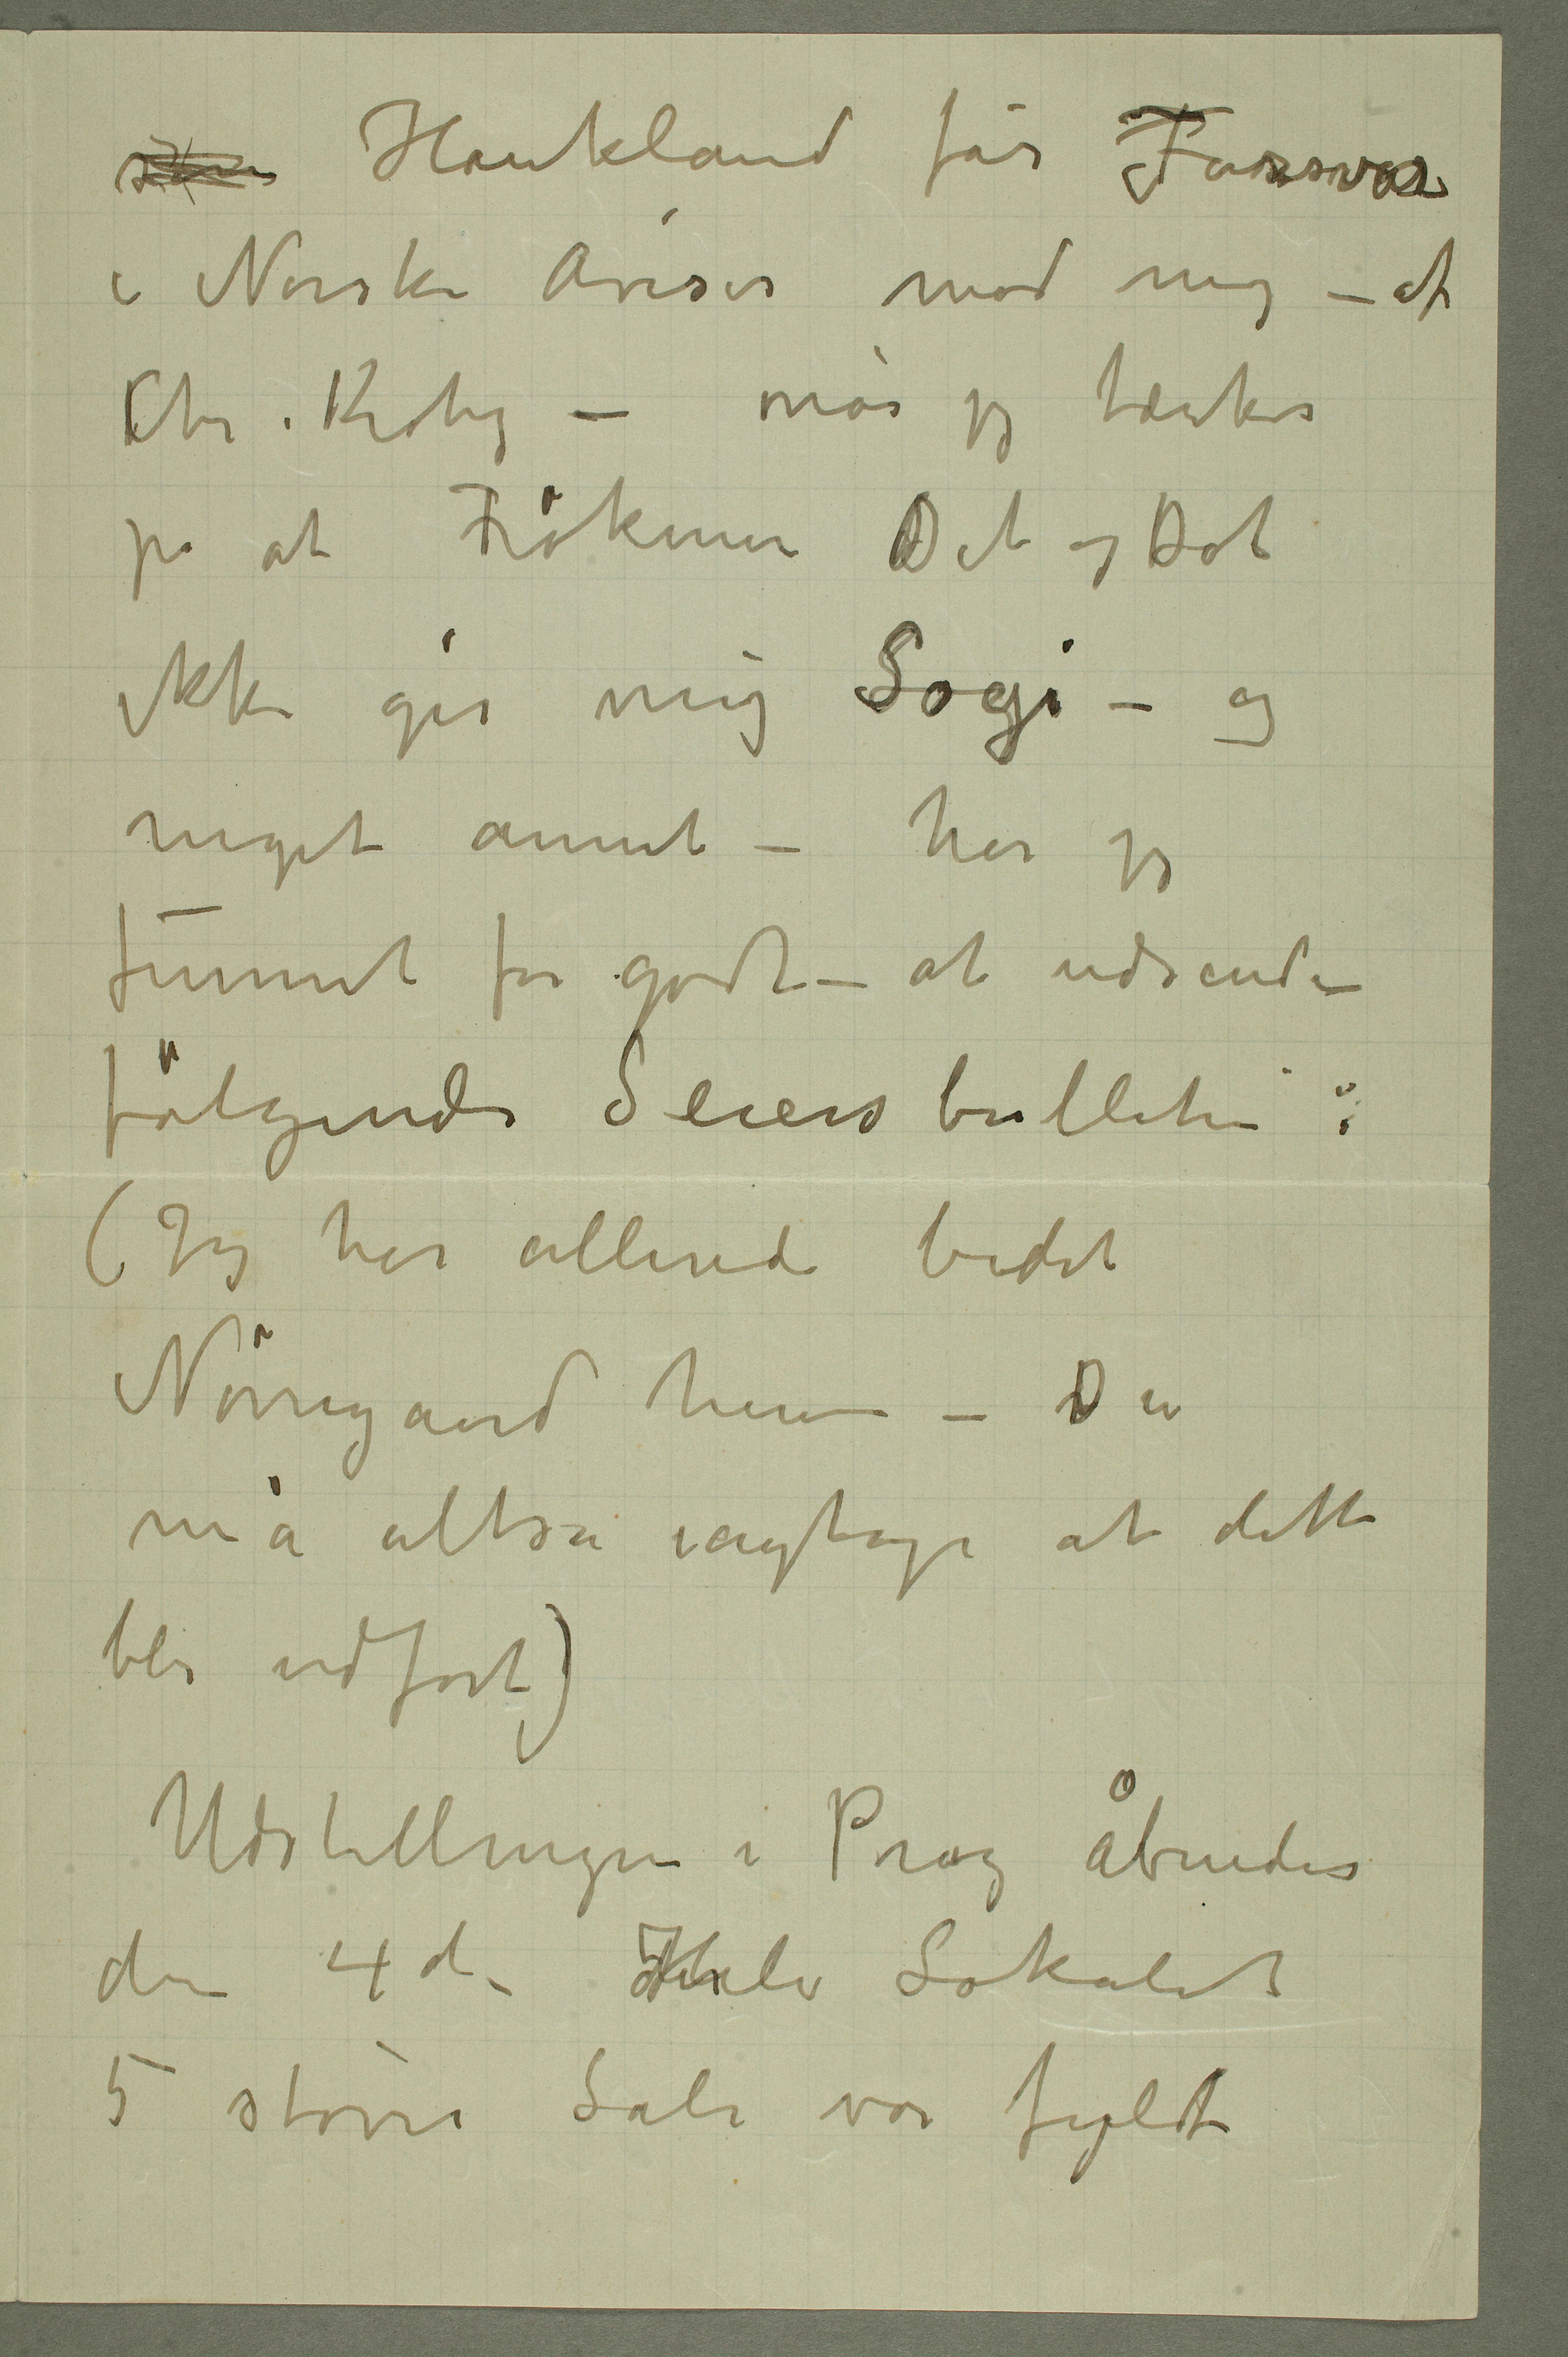 Haukland får Forsvar
i Norske Aviser mod mig – af
Chr. Krohg – når jeg tænker
på at Frökener Dit og Dat
ikke gir mig Logi – og
meget annet – har jeg
funnet for godt – at udsende
fölgende Seiersbulletin:
(Jeg har allerede bedet
Nörregaard herom – Du
må altså iagttage at dette
blir udført)
Udstillingen i Prag åbnedes
den 4de. Hele Lokalet
5 större Sale var fyldt